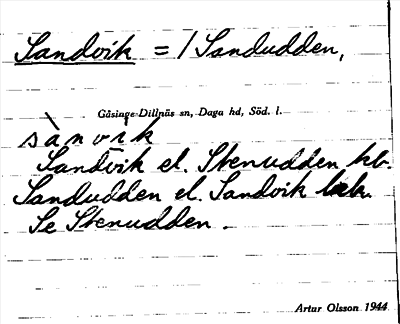 Sandvik = / Sandudden,
Gåsinge-Dillnäs sn, Daga hd, Söd. l.
sànvīk
Sandvik el. Stenudden kb.
Sandudden el. Sandvik
Se Stenudden.
Artur Olsson 1944